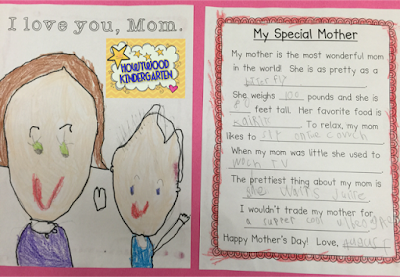 I love you, Mom.
HOWYWOOD
KINDERGARTEN
My Special Mother
My mother is the most wonderful mom
in the world! She is as pretty as a
.
She weighs 100 pounds and she is
feet tall. Her favorite food is
. To relax, my mom
likes to sit on the couch.
When my mom was little she used to
wach TV.
The prettiest thing about my mom is
she
.
I wouldn't trade my mother for
a super cool
Happy Mother's Day! Love, AUGUST